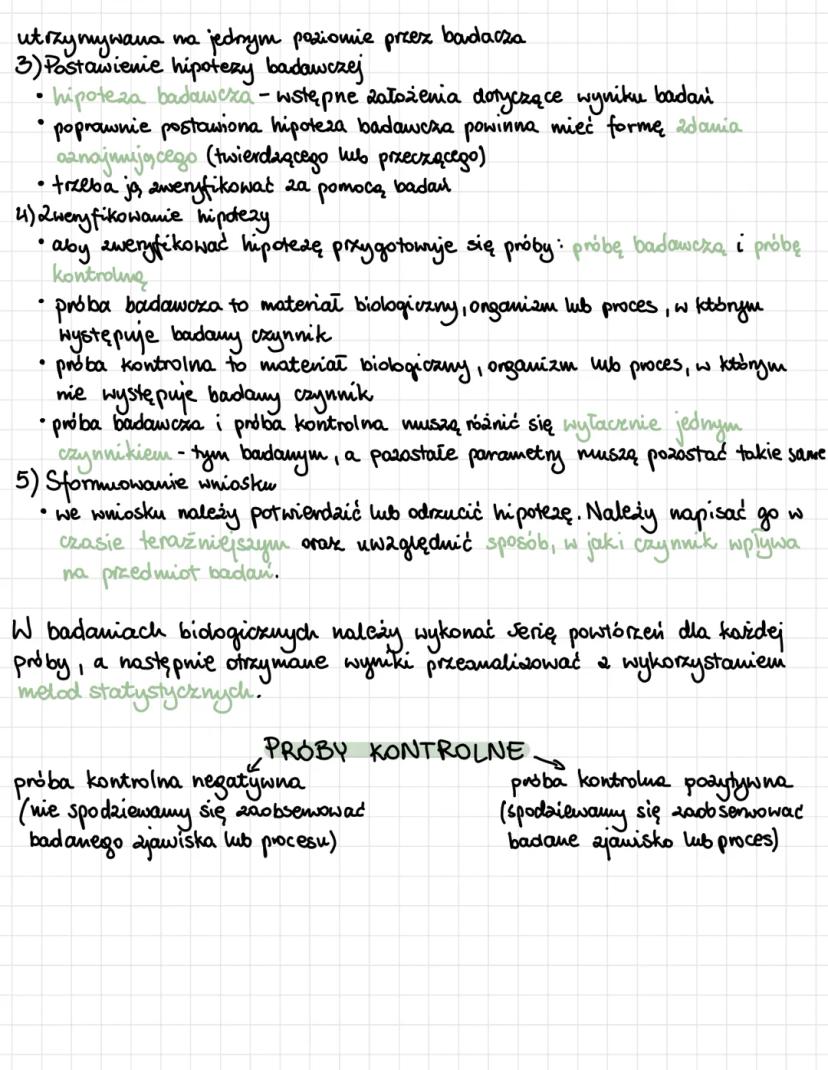 utrzymywana na jednym poziomie przez badacza
3) Postawienie hipotezy badawczej
• hipoteza badawcza - wstępne założenia dotyczące wyniku badań
• poprawnie postawiona hipoteza badawcza powinna mieć formę zdania
oznajmującego (twierdzącego lub przeczącego)
• trzeba ją zweryfikować za pomocą badań
4) Zweryfikowanie hipotezy
• aby zweryfikować hipotezę przygotowuje się próby: próbę badawczą i próbę
kontrolną
• próba badawcza to materiał biologiczny, organizm lub proces, w którym
występuje badany czynnik
• próba kontrolna to materiał biologiczny, organizm lub proces, w którym
nie występuje badany czynnik
• próba badawcza i próba kontrolna muszą różnić się wyłącznie jednym
czynnikiem - tym badanym, a pozostałe parametry muszą pozostać takie same
5) Sformułowanie wniosku
• we wniosku należy potwierdzić lub odrzucić hipotezę. Należy napisać go w
czasie teraźniejszym oraz uwzględnić sposób, w jaki czynnik wpływa
na przedmiot badań.
W badaniach biologicznych należy wykonać serię powtórzeń dla każdej
próby, a następnie otrzymane wyniki przeanalizować z wykorzystaniem
metod statystycznych.
PRÓBY KONTROLNE
próba kontrolna negatywna
(nie spodziewamy się zaobserwować
badanego zjawiska lub procesu)
próba kontrolna pozytywna
(spodziewamy się zaobserwować
badane zjawisko lub proces)